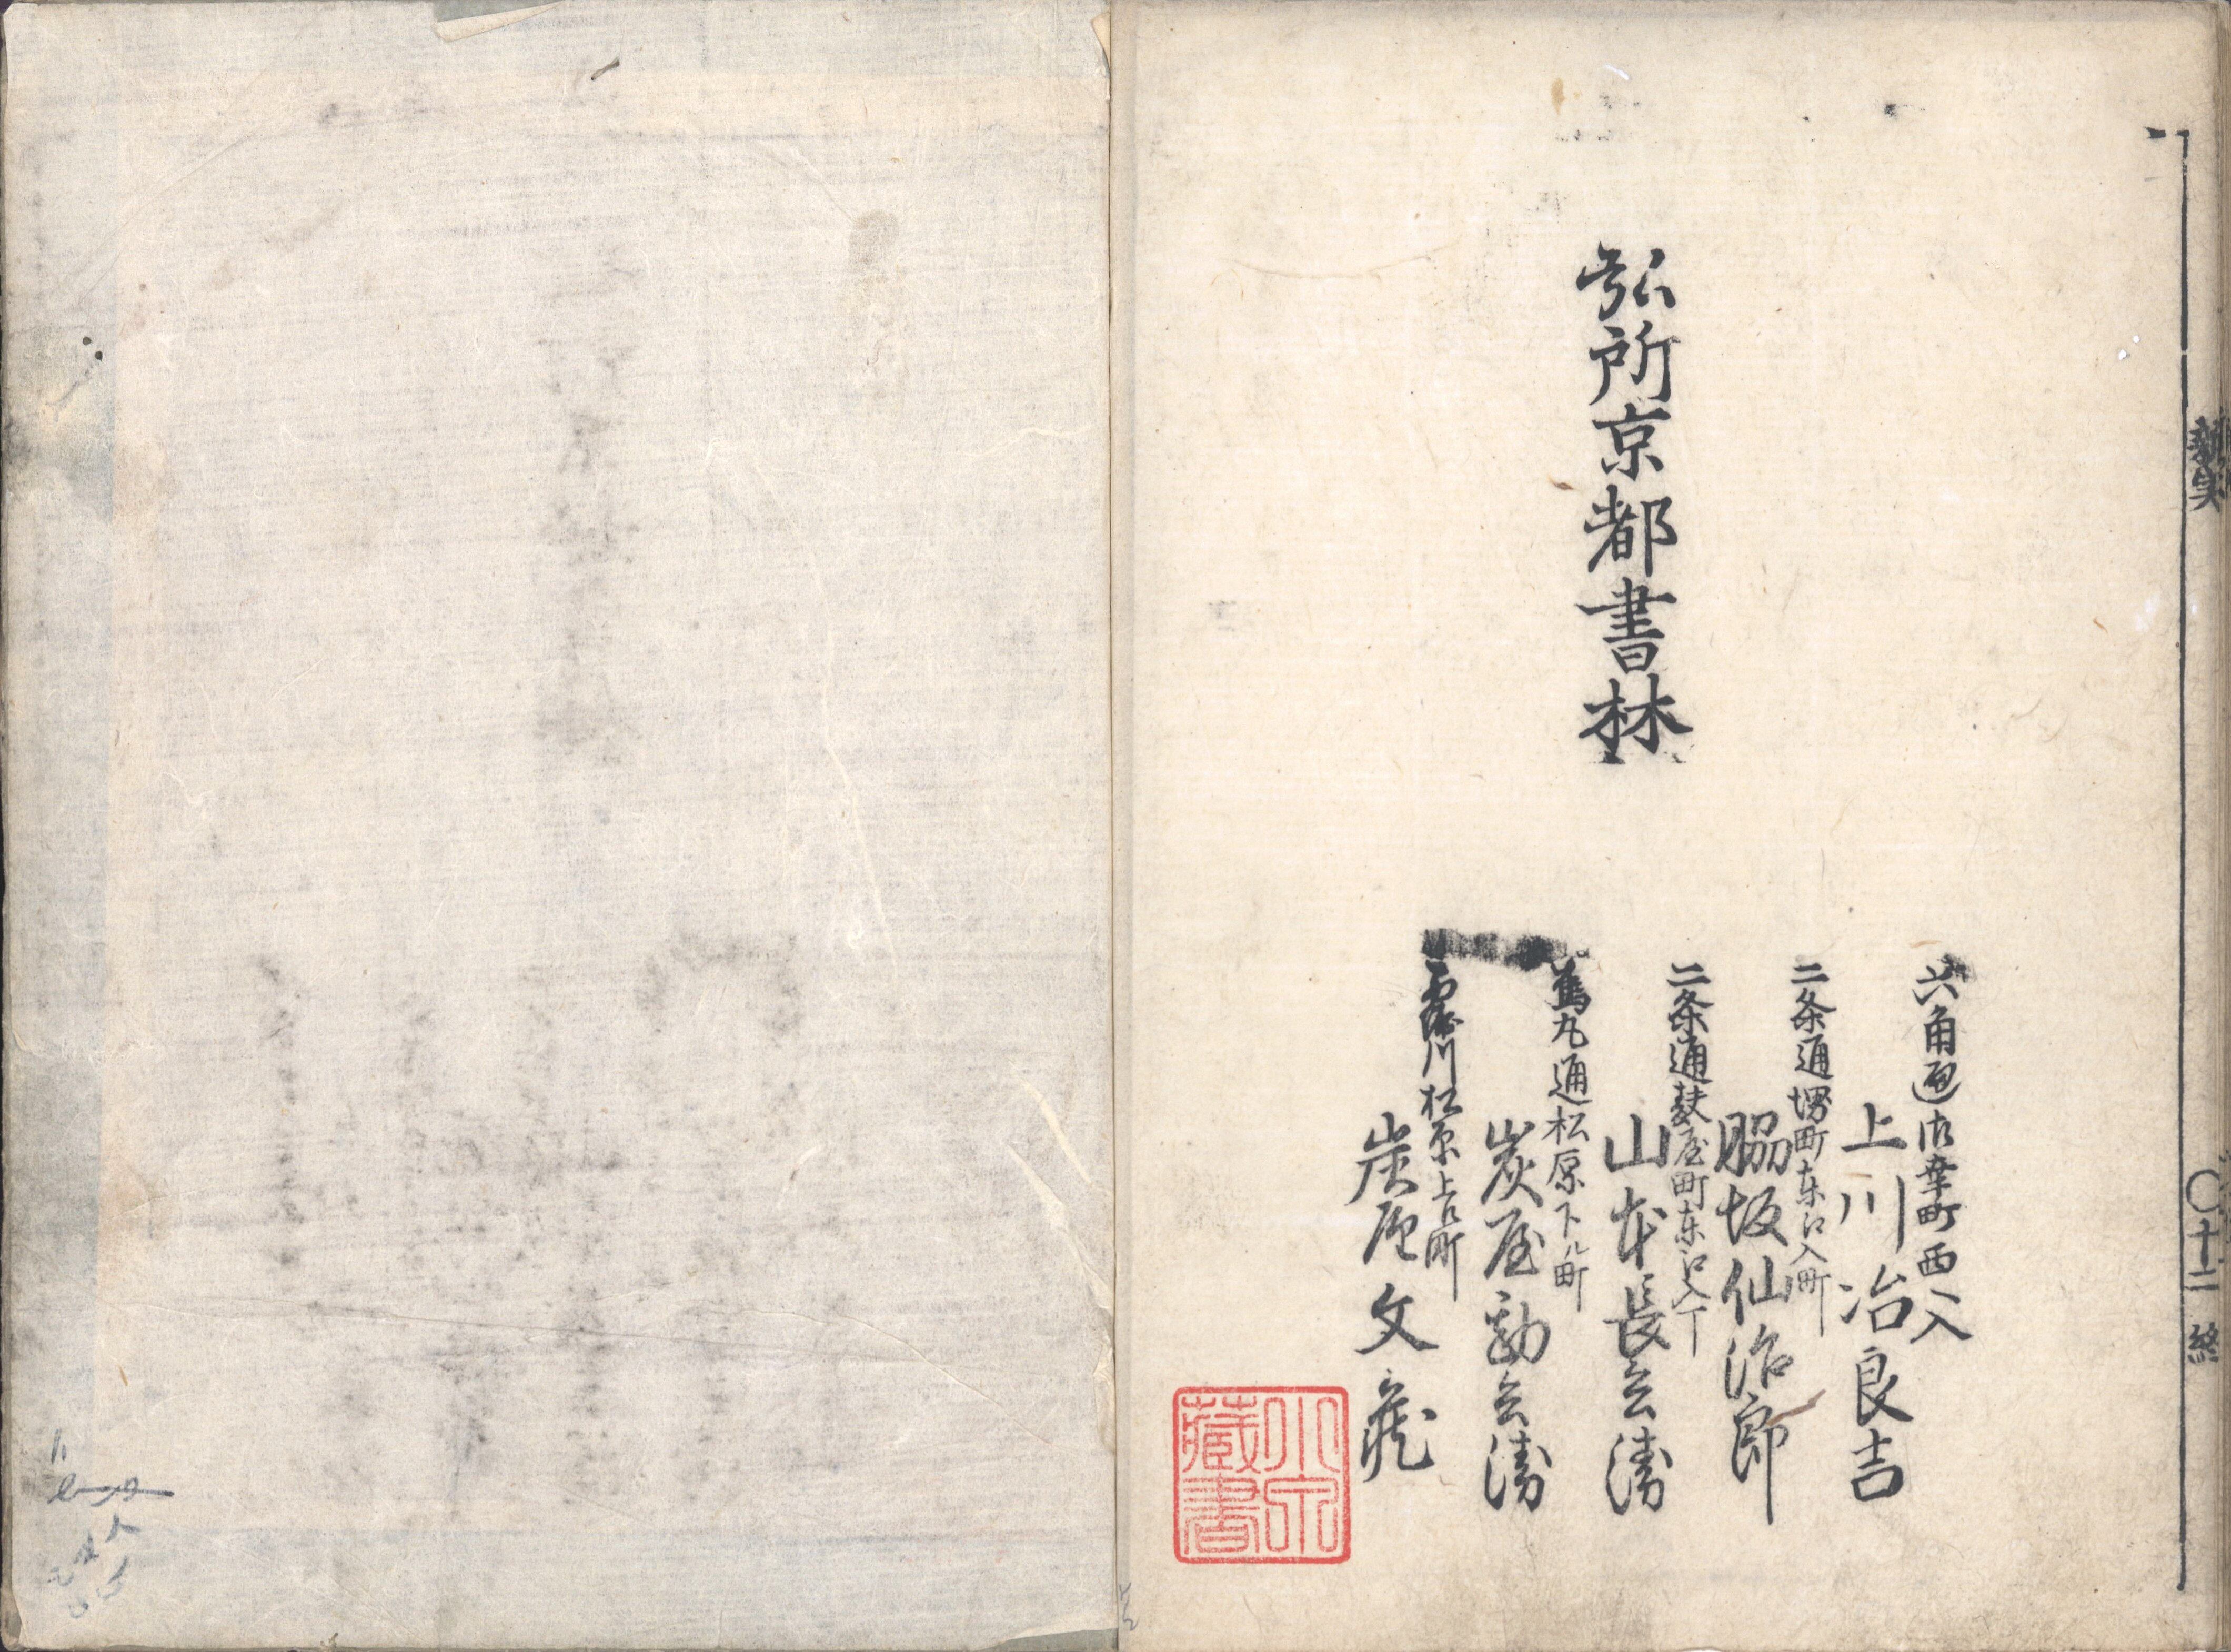 新実
〇十二
終
弘所京都書林
六角通御幸町西入
上川治良吉
二条通堺町東江入町
脇坂仙治郎
二条通麸屋町東江入丁
山本長兵衛
烏丸通松原下ル町
炭屋勘兵衛
西堀川松原上ル町
炭屋文蔵
小宗
蔵書